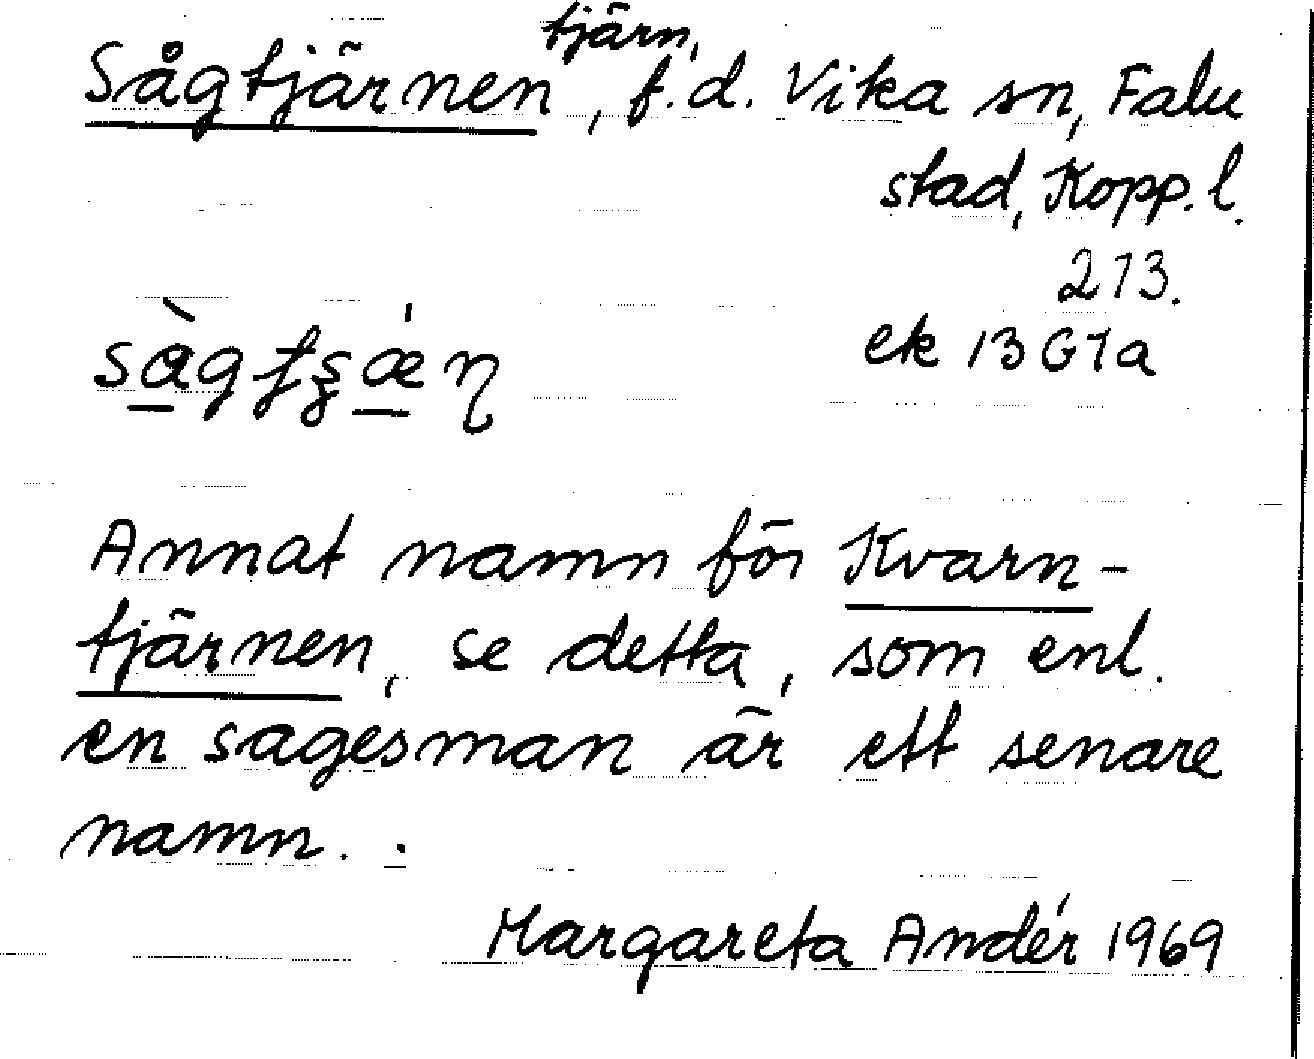 Sågtjärnen, tjärn, f.d. Vika sn, Falu
stad, Kopp. l.
213.
ek 13G1a
Annat namn för Kvarn-
tjärnen, se detta, som enl.
en sagesman är ett senare
namn.
Margareta Andér 1969